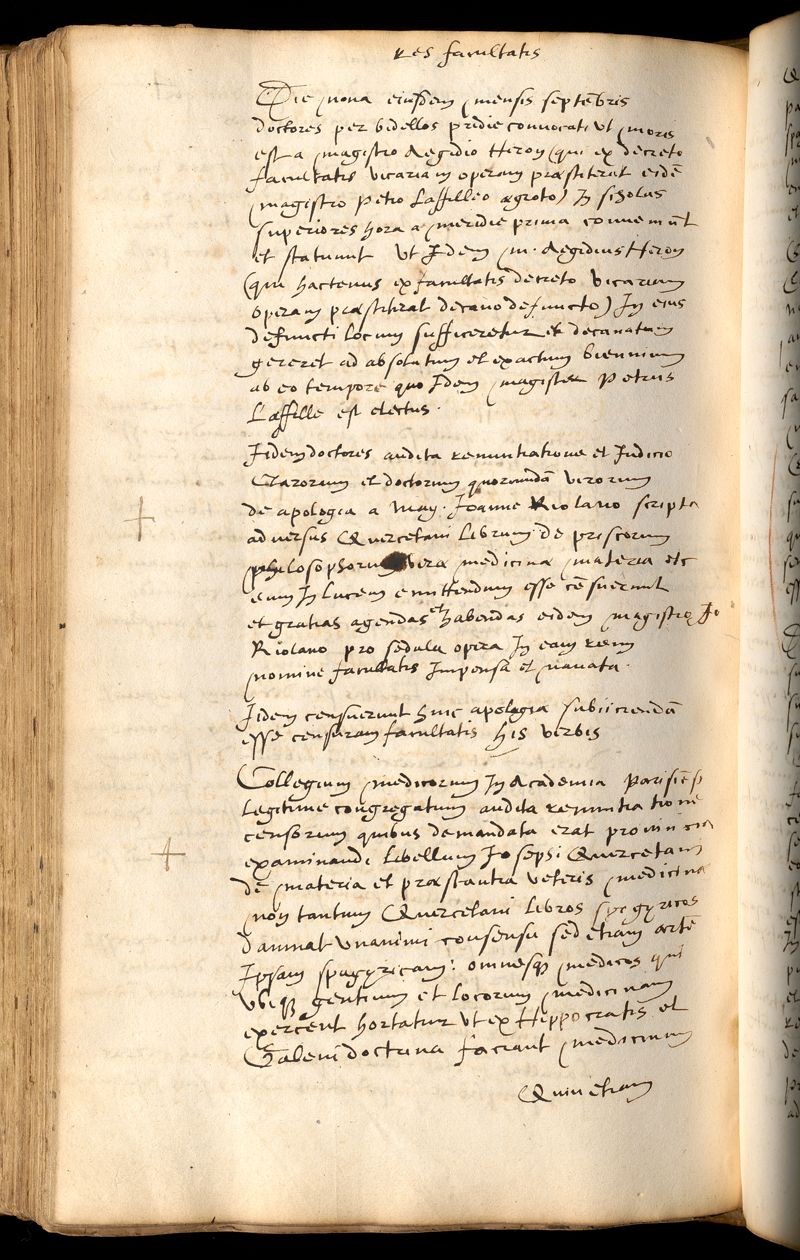 res facultatis
Die nona eiusdem mensis septembris
doctores per bidellos pridie convocati ut moris
est a magistro Aegidio Heron (qui ex decreto
facultatis vicariam operam præstiterat eidē
magistro Petro Laffilleo ægroto) In scholas
superiores hora a meridie prima conveniūt
et statuunt ut Idem m. Aegidius Heron
(qui hactenus ex facultatis decreto vicariam
operam præstitirat decano defuncto) In eius
defuncti locum sufficeretur et decanatum
gereret ad absolutum et exactum biennium
ab eo tempore quo Idem magister Petrus
Laffille est electus.
Iidem doctores audita renuntiatione et Iudicio
Clarorum et doctorum quorundā virorum
de apologia a Mag. Joanne Riolano scripta
adversus Quercetani Librum de priscorum
philosophorum veræ medicinæ materia etc
eum In Lucem emittendum esse cēsuerunt
et gratias agendas et habendas eidem magistro Jo
Riolano pro sedula opera In eam rem
nomine facultatis Impensa et navata.
Iidem censuerunt huic apologia subiiciendā
esse censuram facultatis his verbis
Collegium medicorum In Academia Parisiēsi
Legitime congregatum audita renuntiatione
censorum quibus demandata erat provincia
examinandi Libellum Josepsi Quercetani
de materia et præstantia veteris medicinæ
non tantum Quercetani Libros spagyricos
damnat unanimi consensu sed etiam artē
Ipsam spagyricam: omnesq medicos qui
ubiq gentium et locorum medicinam
exercent hortatur ut ex Hippocratis et
Galeni doctrina faciant medicinam
Quin etiam